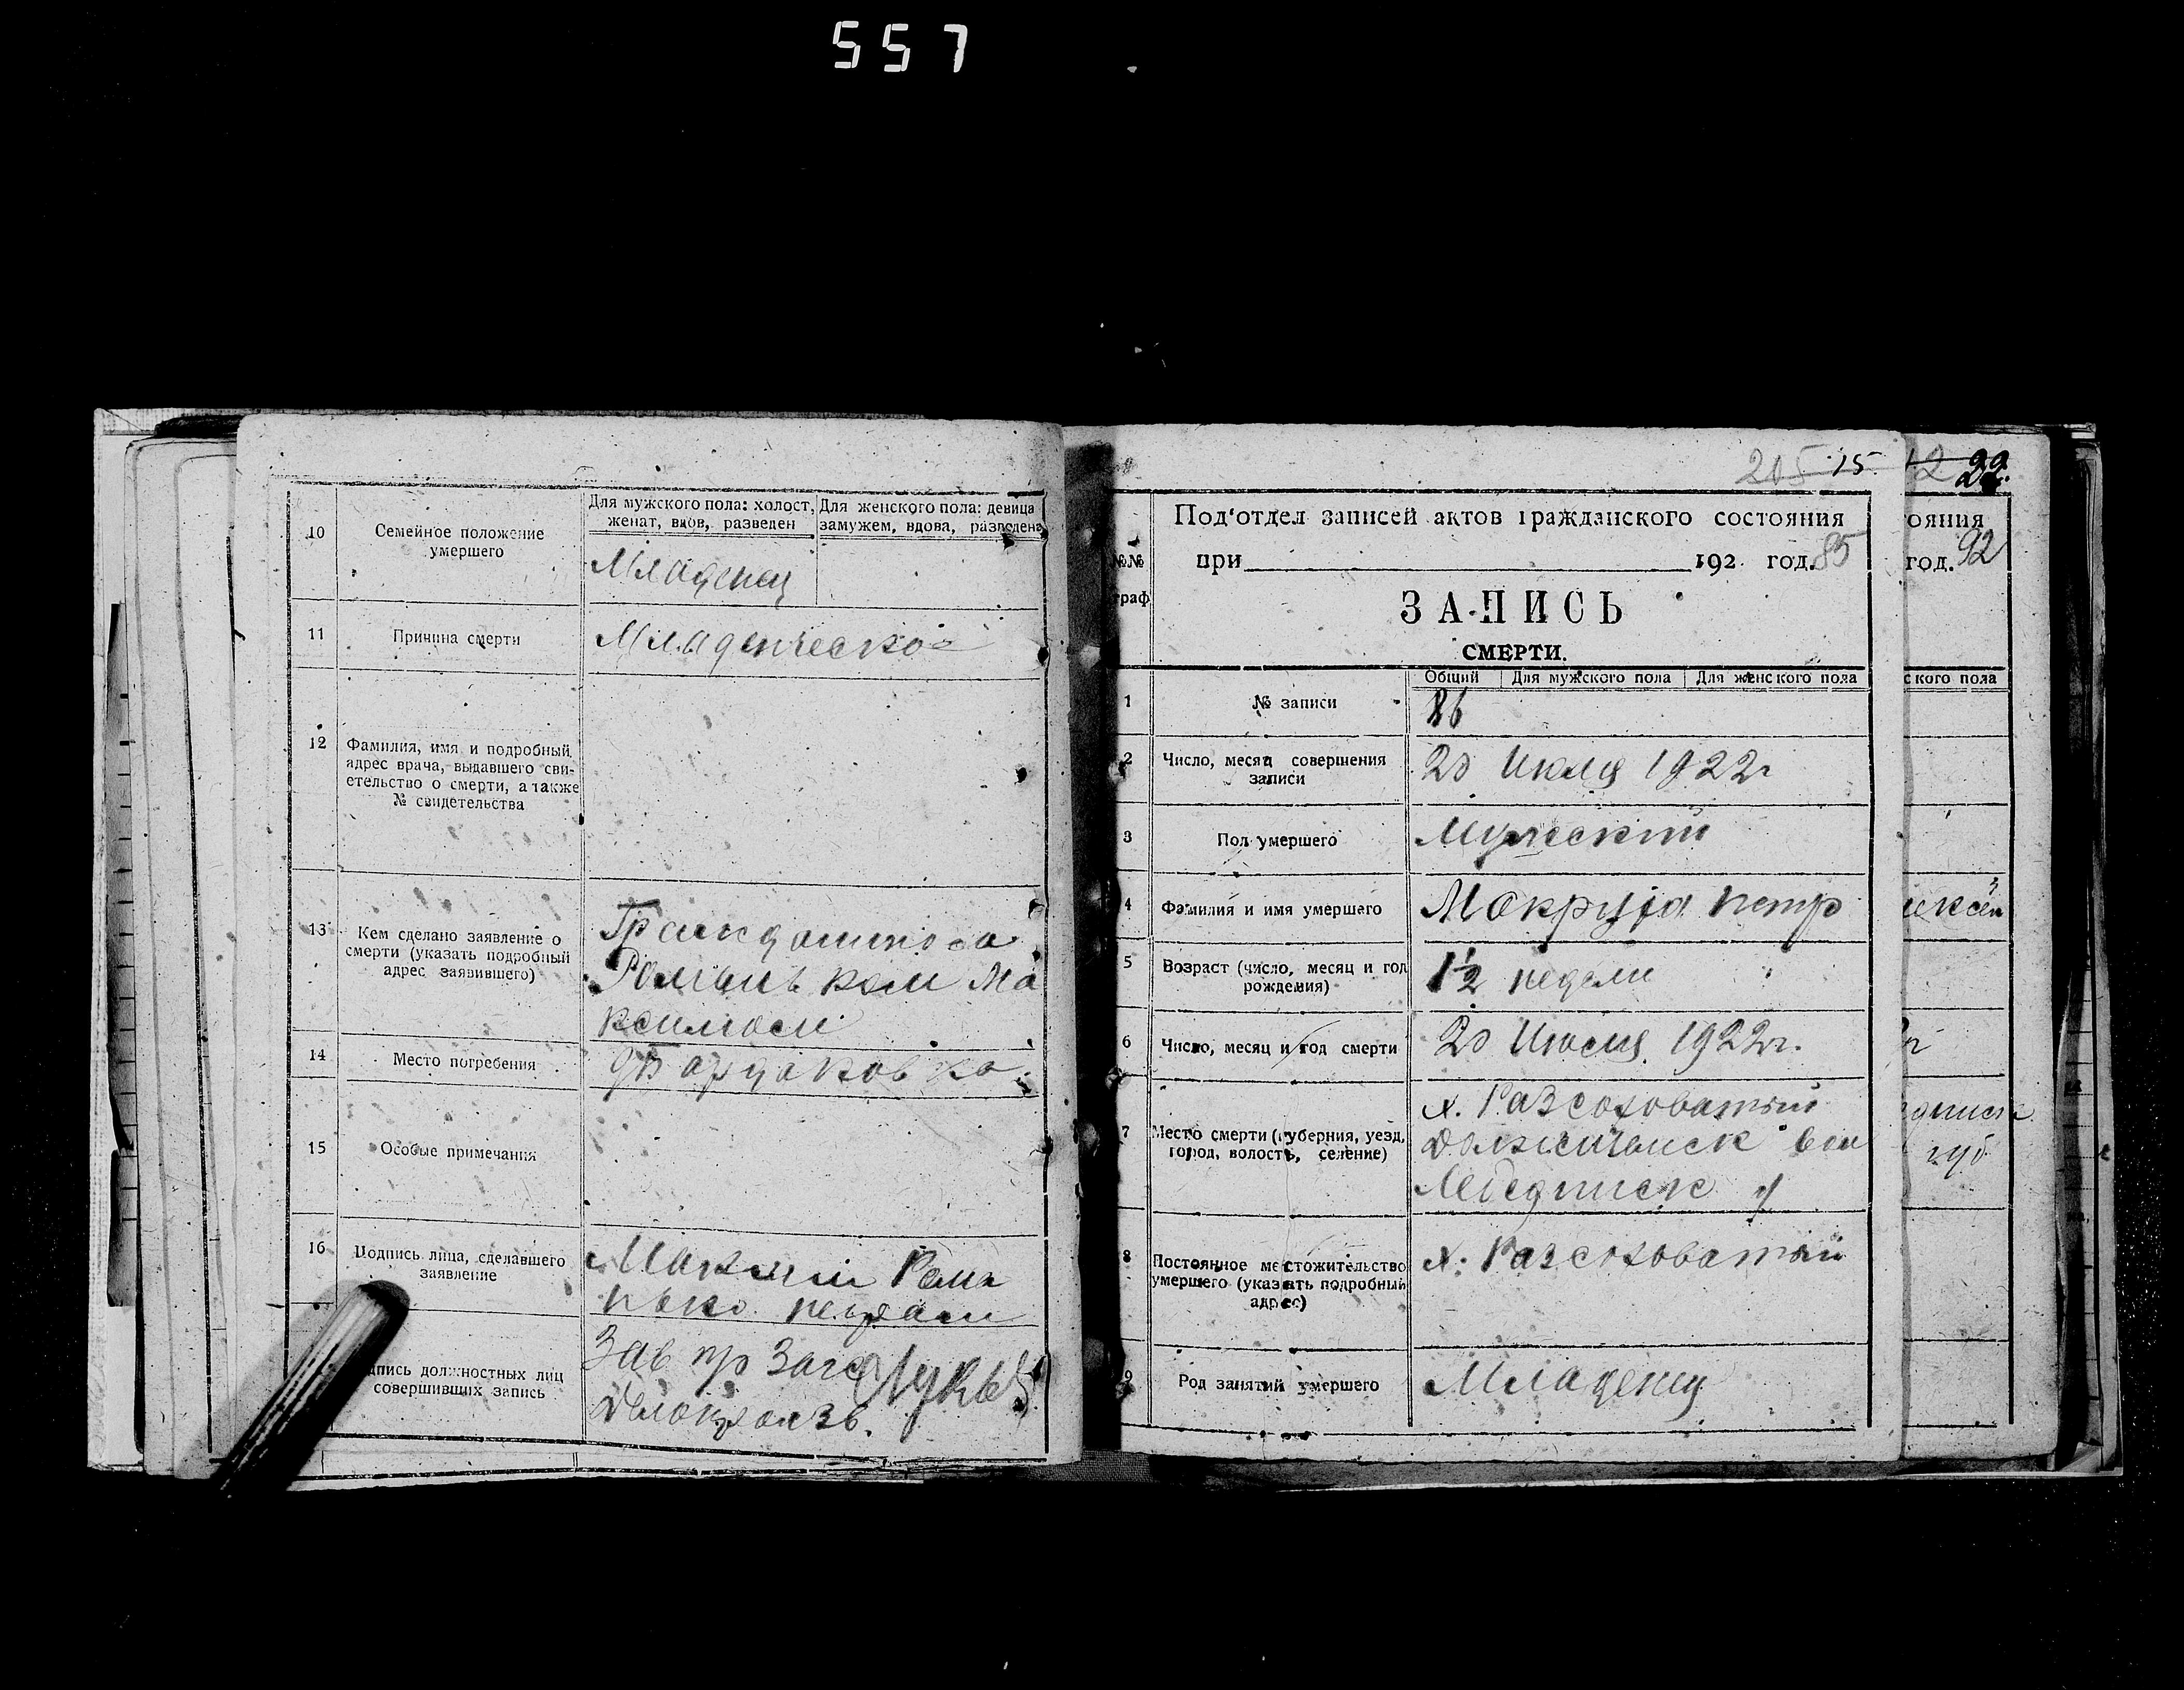 557
10
Семейное положение
умершего
Для мужского пола: холост,
женат, вдов, разведен
Для женского пола: девица
замужем, вдова, разведена
Младенец
11
Причина смерти
Младенческо
12
Фамилия, имя и подробный
адрес врача, выдавшего сви-
етельство о смерти, а также
№ свидетельства
13
Кем сделано заявление о
смерти (указать подробный
адрес заявившего)
Ма
ксимом
14
Место погребения
15
Особые примечания
16
Подпись лица, сделавшего
заявление
Рома
нько
дпись должностных лиц
совершивших запись
Зав
205 15
Под'отдел записей актов гражданского состояния
при 192 год. 85
№№
граф
ЗАПИСЬ
СМЕРТИ.
Общий
Для мужского пола
Для женского пола
1
№ записи
86
2
Число, месяц совершения
записи
20 Июля 1922г
3
Пол умершего
Мужеский
4
Фамилия и имя умершего
петр
5
Возраст (число, месяц и год
рождения)
1½ недели
6
Число, месяц и год смерти
20 Июля 1922г.
7
Место смерти (губерния, уезд,
город, волость, селение)
х. Разсоховатый
вол
8
Постоянное местожительство
умершего (указать подробный
адрес)
х. Разсоховатый
9
Род занятий умершего
Младенец
22
ояния
год. 92
ского пола